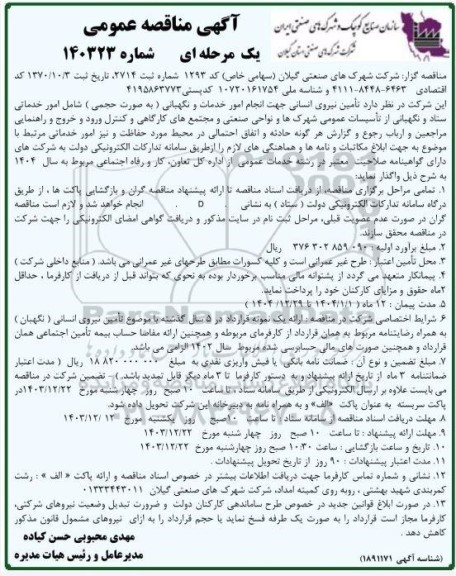 سازمان صنایع کوچک و شهرک های صنعتی ایران
شرکت شهرک های صنعتی استان گیلان
آگهی مناقصه عمومی
یک مرحله ای شماره ۱۴۰۳۲۳
مناقصه گزار: شرکت شهرک های صنعتی گیلان (سهامی خاص) کد ۱۲۹۳ شماره ثبت ۲۷۱۴، تاریخ ثبت ۱۳۷۰/۱۰/۳ کد
اقتصادی ۶۴۶۳-۸۴۴۸-۴۱۱۱ و شناسه ملی ۱۰۷۲۰۱۶۱۷۵۴ کدپستی ۴۱۹۵۸۶۳۷۷۳
این شرکت در نظر دارد تأمین نیروی انسانی جهت انجام امور خدمات و نگهبانی ( به صورت حجمی ) شامل امور خدماتی
ستاد و نگهبانی از تأسیسات عمومی شهرک ها و نواحی صنعتی و مجتمع های کارگاهی و کنترل ورود و خروج و راهنمایی
مراجعین و ارباب رجوع و گزارش هر گونه حادثه و اتفاق احتمالی در محیط مورد حفاظت و نیز امور خدماتی مرتبط با
موضوع به جهت ابلاغ مکاتبات و نامه ها و هماهنگی های لازم را ازطریق سامانه تدارکات الکترونیکی دولت به شرکت های
دارای گواهینامه صلاحیت معتبر در رشته خدمات عمومی از اداره کل تعاون، کار و رفاه اجتماعی مربوط به سال ۱۴۰۴
به شرح ذیل واگذار نماید:
۱. تمامی مراحل برگزاری مناقصه از دریافت اسناد مناقصه تا ارائه پیشنهاد مناقصه گران و بازگشایی پاکت ها ، از طریق
درگاه سامانه تدارکات الکترونیکی دولت ( ستاد ) به نشانی انجام خواهد شد و لازم است مناقصه
گران در صورت عدم عضویت قبلی، مراحل ثبت نام در سایت مذکور و دریافت گواهی امضای الکترونیکی را جهت شرکت
در مناقصه محقق سازند.
۲. مبلغ برآورد اولیه: ۳۷۶ ۳۰۲ ۸۵۹ ۰۹۰ ریال
۳. محل تأمین اعتبار : طرح غیر عمرانی است و کلیه کسورات مطابق طرحهای غیر عمرانی می باشد. ( منابع داخلی شرکت )
۴. پیمانکار متعهد می گردد از پشتوانه مالی مناسب برخوردار بوده به نحوی که بتواند قبل از دریافت از کارفرما ، حداقل
۲ماه حقوق و مزایای کارکنان خود را پرداخت نماید.
۵. مدت پیمان : ۱۲ ماه ( ۱۴۰۴/۱/۱ تا ۱۴۰۴/۱۲/۲۹ )
۶. شرایط اختصاصی شرکت در مناقصه: ارائه یک نمونه قرارداد در ۵ سال گذشته با موضوع تأمین نیروی انسانی ( نگهبان )
به همراه رضایتنامه مربوط به همان قرارداد از کارفرمای مربوطه و همچنین ارائه مفاصا حساب بیمه تأمین اجتماعی همان
قرارداد و همچنین صورت های مالی حسابرسی شده مربوط سال ۱۴۰۲ الزامی می باشد.
۷. مبلغ تضمین و نوع آن : ضمانت نامه بانکی یا فیش واریزی نقدی به مبلغ ریال ( مدت اعتبار
ضمانتنامه ۳ ماه از تاریخ ارائه پیشنهاد، به دستور کارفرما تا ۳ ماه دیگر قابل تمدید باشد. ) – تضمین شرکت در مناقصه
می بایست علاوه بر ارسال الکترونیکی از طریق سامانه ستاد، تا ساعت ۱۰ صبح روز چهارشنبه مورخ ۱۴۰۳/۱۲/۲۲در
پاکت سربسته به عنوان پاکت «الف» و به همراه نامه به دبیرخانه این شرکت تحویل داده شود.
۸. مهلت دریافت اسناد مناقصه از سامانه ستاد: تا ساعت ۱۰صبح روز یکشنبه مورخ ۱۴۰۳/۱۲/۱۲
۹. مهلت ارائه پیشنهاد : تا ساعت ۱۰ صبح روز چهار شنبه مورخ ۱۴۰۳/۱۲/۲۲
۱۰. تاریخ و ساعت بازگشایی : ساعت ۱۰:۳۰ صبح روز چهارشنبه مورخ ۱۴۰۳/۱۲/۲۲
۱۱. مدت اعتبار پیشنهادات : ۹۰ روز از تاریخ تحویل پیشنهادات.
۱۲. نشانی و شماره تماس کارفرما جهت دریافت اطلاعات بیشتر در خصوص اسناد مناقصه و ارائه پاکت « الف » : رشت
کمربندی شهید بهشتی ، روبه روی کمیته امداد، شرکت شهرک های صنعتی گیلان ۰۱۳۳۳۴۴۳۰۱۱
۱۳. در صورت ابلاغ قوانین جدید در خصوص طرح ساماندهی کارکنان دولت و ضرورت تبدیل وضعیت نیروهای شرکتی،
کارفرما مجاز است قرارداد را به صورت یک طرفه فسخ نماید یا حجم قرارداد را به ازای نیروهای مشمول قانون مذکور
کاهش دهد.
مهدی محبوبی حسن کیاده
مدیرعامل و رئیس هیات مدیره
(شناسه آگهی ۱۸۹۱۱۷۱)